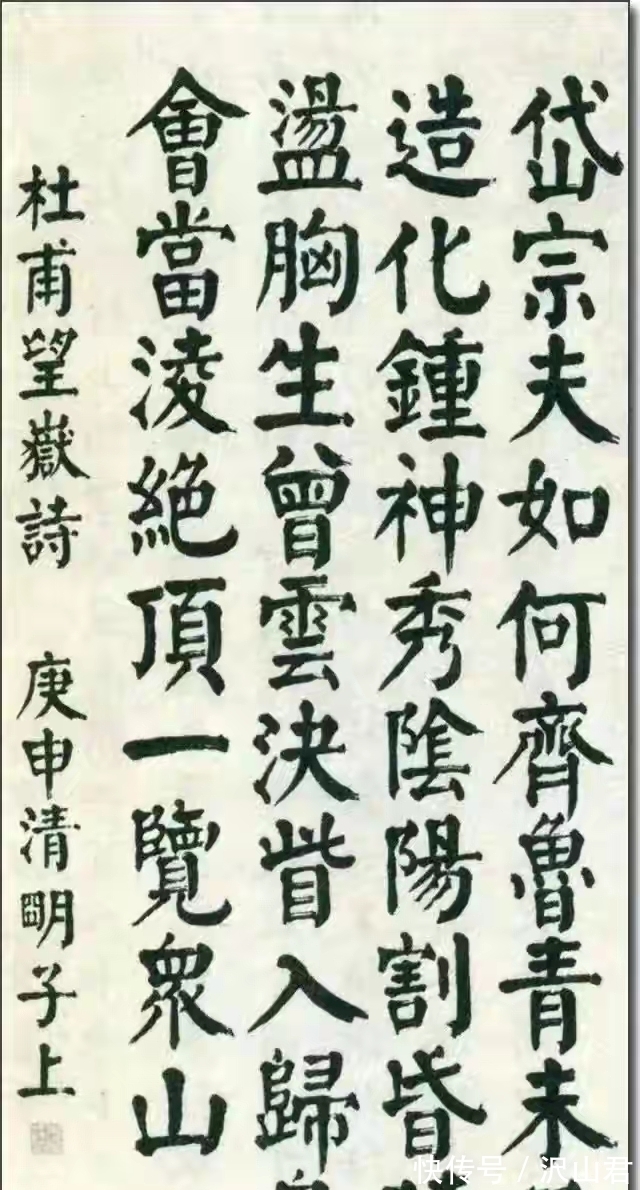 岱宗夫如何齊魯青未
造化鍾神秀陰陽割昏
盪胸生曾雲決眥入歸
會當淩絶頂一覽衆山
杜甫望嶽詩 庚申清明子上
快传号/沢山君